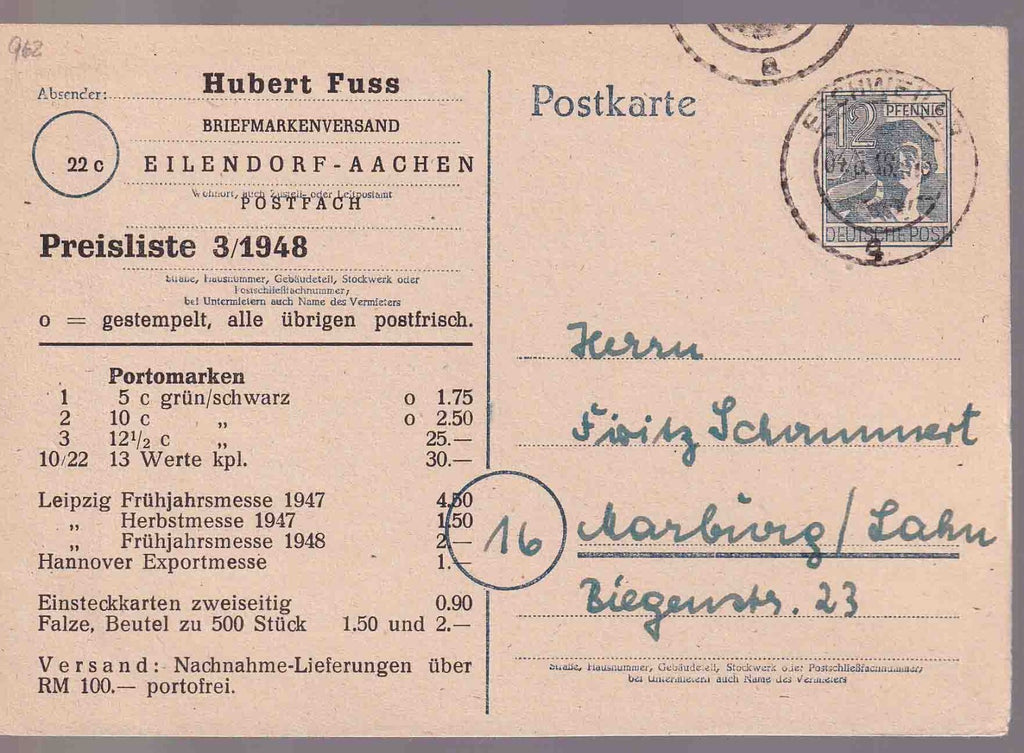 962
Absender:
Hubert Fuss
BRIEFMARKENVERSAND
22 c
EILENDORF-AACHEN
Wohnort, auch Zustell- oder Leitpostamt
POSTFACH
Preisliste 3/1948
Straße, Hausnummer, Gebäudeteil, Stockwerk oder
Postschließfachnummer,
bei Untermietern auch Name des Vermieters
o = gestempelt, alle übrigen postfrisch.
Portomarken
1 5 c grün/schwarz o 1.75
2 10 c „ o 2.50
3 12 1/2 c „ 25.—
10/22 13 Werte kpl. 30.—
Leipzig Frühjahrsmesse 1947 4,50
„ Herbstmesse 1947 1,50
„ Frühjahrsmesse 1948 2.—
Hannover Exportmesse 1.—
Einsteckkarten zweiseitig 0.90
Falze, Beutel zu 500 Stück 1.50 und 2.—
Versand: Nachnahme-Lieferungen über
RM 100.— portofrei.
Postkarte
a
ESCHWEILER
12 PFENNIG
DEUTSCHE POST
Herrn
Fritz Schammert
16
Marburg/Lahn
Biegenstr. 23
Straße, Hausnummer, Gebäudeteil, Stockwerk oder Postschließfachnummer,
bei Untermietern auch Name des Vermieters